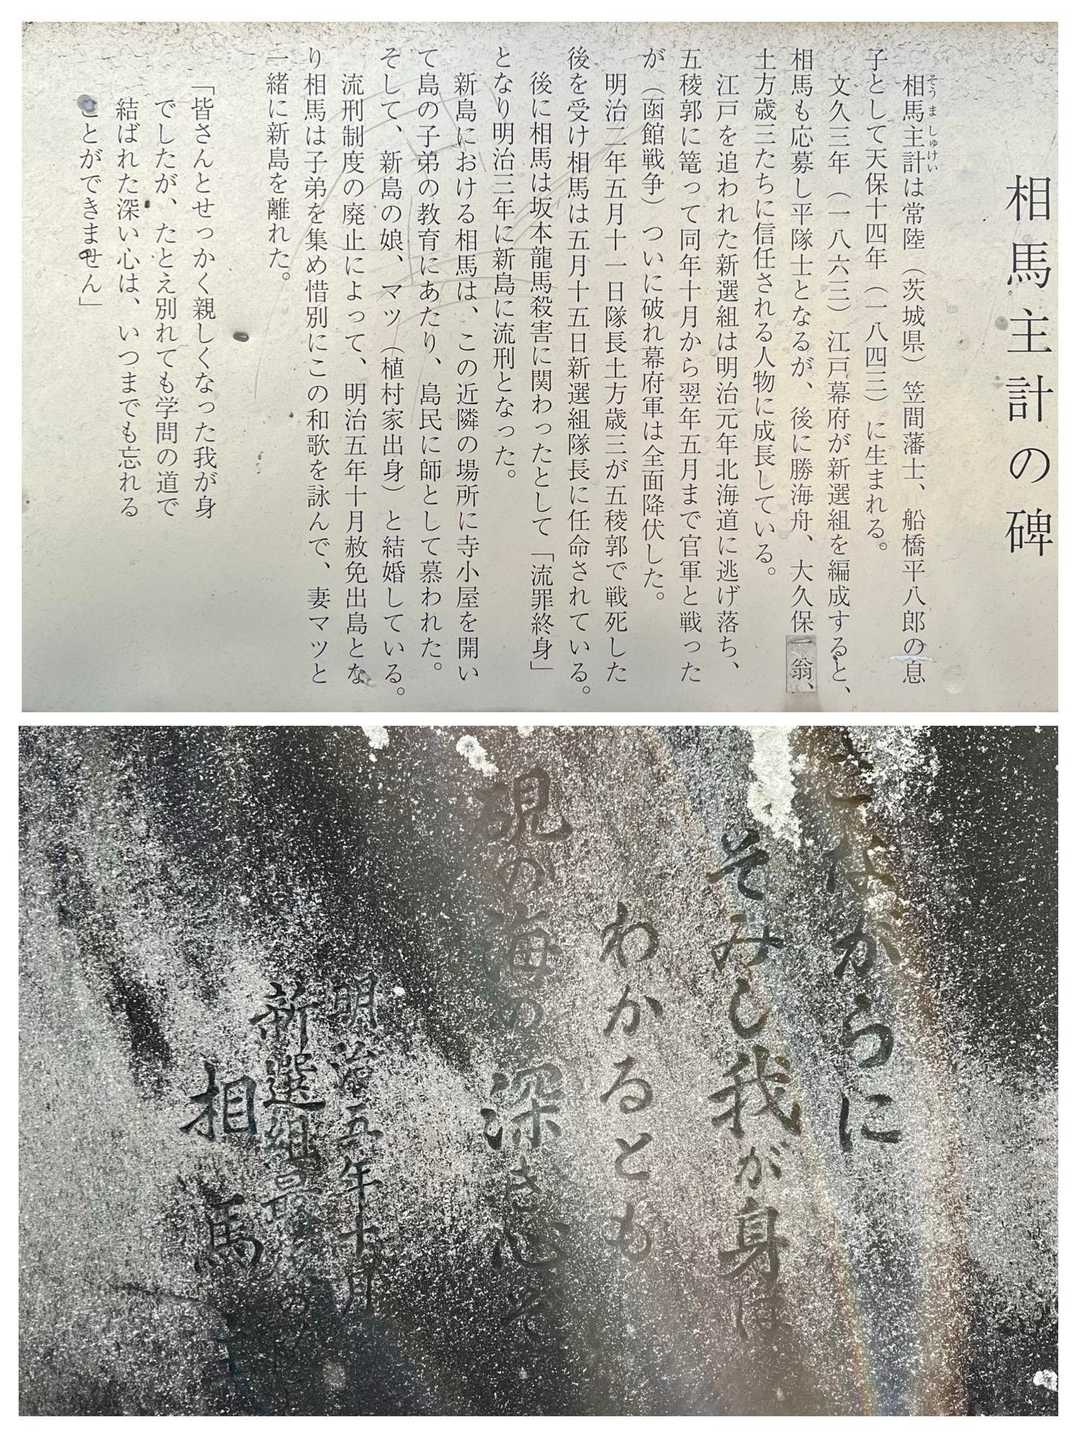 相馬主計の碑
そうましゅけい
相馬主計は常陸（茨城県）笠間藩士、船橋平八郎の息
子として天保十四年（一八四三）に生まれる。
文久三年（一八六三）江戸幕府が新選組を編成すると、
相馬も応募し平隊士となるが、後に勝海舟、大久保一翁、
土方歳三たちに信任される人物に成長している。
江戸を追われた新選組は明治元年北海道に逃げ落ち、
五稜郭に篭って同年十月から翌年五月まで官軍と戦った
が（函館戦争）ついに破れ幕府軍は全面降伏した。
明治二年五月十一日隊長土方歳三が五稜郭で戦死した
後を受け相馬は五月十五日新選組隊長に任命されている。
後に相馬は坂本龍馬殺害に関わったとして「流罪終身」
となり明治三年に新島に流刑となった。
新島における相馬は、この近隣の場所に寺小屋を開い
て島の子弟の教育にあたり、島民に師として慕われた。
そして、新島の娘、マツ（植村家出身）と結婚している。
流刑制度の廃止によって、明治五年十月赦免出島とな
り相馬は子弟を集め惜別にこの和歌を詠んで、妻マツと
一緒に新島を離れた。
「皆さんとせっかく親しくなった我が身
でしたが、たとえ別れても学問の道で
結ばれた深い心は、いつまでも忘れる
ことができません」
ながらに
そみし我が身は
わかるとも
硯の海の深き心ぞ
明治五年十月
新選組
相馬主